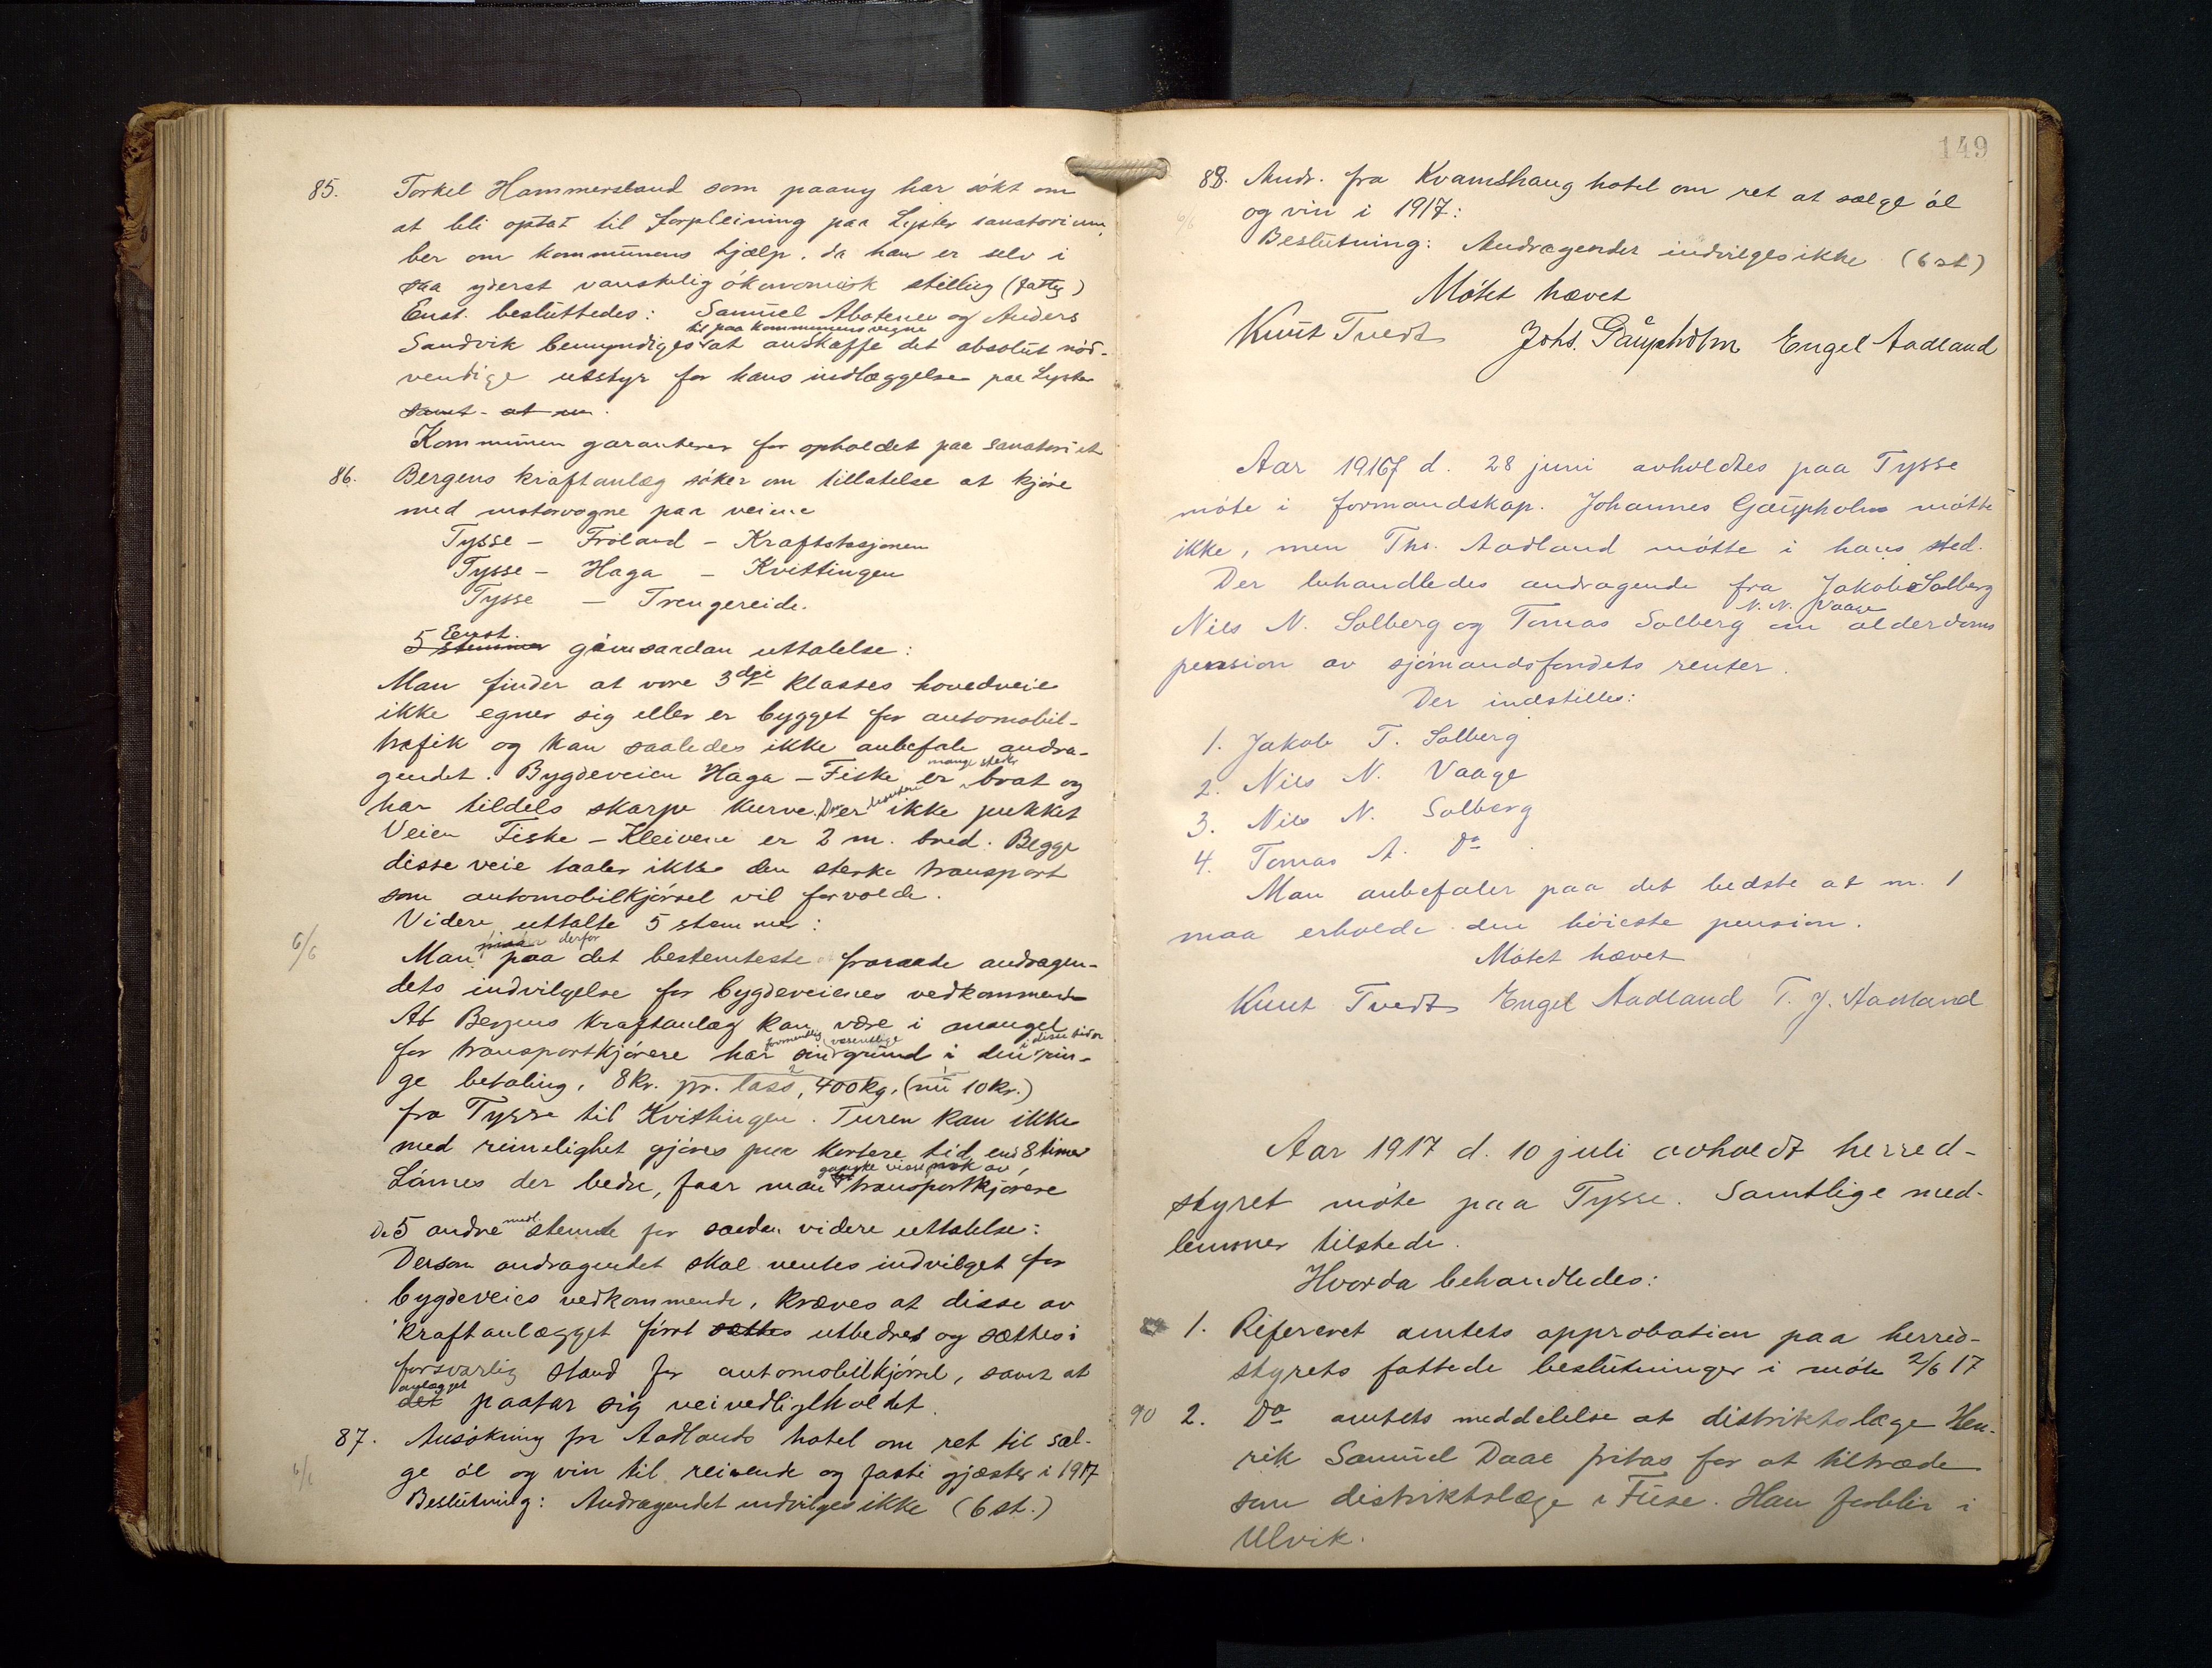 85. Torkel Hammersland som paany har søkt om
at bli optat til forpleining paa Lyster sanatorium,
ber om kommunens hjælp, da han er selv i
saa yderst vanskelig økonomisk stilling (fattig)
Enst. besluttedes: Samuel Abotenes og Anders
til paa kommunens vegne
Sandvik bemyndiges at anskaffe det absolut nød-
vendige utstyr for hans indlæggelse paa Lyster
samt at
Kommunen garanterer for opholdet paa sanatoriet
86. Bergens kraftanlæg søker om tillatelse at kjøre
med motorvogne paa veiene
Tysse – Frøland – Kraftstasjonen
Tysse – Haga – Kvittingen
Tysse – Trengereide.
Eenst.
5 stemmer gav saadan uttalelse:
Man finder at vore 3dje klasses hovedveie
ikke egner sig eller er bygget for automobil-
trafik og kan saaledes ikke anbefale andra-
gendet. Bygdeveien Haga – Fiske er mange steder brat og
har tildels skarpe kurve. Den er desuten ikke pukket
Veien Fiske – Kleivene er 2 m. bred. Begge
disse veie taaler ikke den sterke transport
som automobilkjørsel vil forvolde.
Videre uttalte 5 stemmer:
6/6
Man maa derfor paa det bestemteste fraraade andragen-
dets indvilgelse for bygdeveienes vedkommende
At Bergens kraftanlæg kan være i mangel
formentlig væsentlige i disse tider
for transportkjørere har sin grund i den rin-
ge betaling, 8 kr. pr. lass, 400 kg, (nu 10 kr.)
fra Tysse til Kvittingen. Turen kan ikke
med rimelighet gjøres paa kortere tid end 8 timer
ganske visst nok av
Lønnes der bedre, faar man transportkjørere
De 5 andre medl. stemte for saadan videre uttalelse:
Dersom andragendet skal ventes indvilget for
bygdeveies vedkommende, kræves at disse av
kraftanlægget først sættes utbedret og sættes i
forsvarlig stand for automobilkjørsel, samt at
anlægget
det paatar sig veivedlikeholdet.
87. Ansøkning fra Aadlands hotel om ret til sæl-
6/6
ge øl og vin til reisende og faste gjæster i 1917
Beslutning: Andragendet indvilges ikke (6 st.)
149
88. Andr. fra Kvamshaug hotel om ret at sælge øl
6/6
og vin i 1917:
Beslutning: Andragendet indvilges ikke (6 st)
Møtet hævet
Knut Tvedt Johs. Gaupholm Engel Aadland
Aar 19167 d. 28 juni avholdtes paa Tysse
møte i formandskap. Johannes Gaupholm møtte
ikke, men Ths. Aadland møtte i hans sted.
Der behandledes andragende fra Jakob Solberg
N. N. Vaage
Nils N. Solberg og Tomas Solberg om alderdoms
pension av sjømandsfondets renter.
Der indstilles:
1. Jakob T. Solberg
2. Nils N. Vaage
3. Nils N. Solberg
4. Tomas A. Do
Man anbefaler paa det bedste at nr. 1
maa erholde den høieste pension.
Møtet hævet
Knut Tvedt Engel Aadland T. J. Aadland
Aar 1917 d. 10 juli avholdt herred-
styret møte paa Tysse. Samtlige med-
lemmer tilstede.
Hvorda behandledes:
1. Referert amtets approbation paa herred-
styrets fattede beslutninger i møte 2/6 17
90 2. Do amtets meddelelse at distriktslæge Hen-
rik Samuel Daae fritas for at tiltræde
som distriktslæge i Fuse. Han forblir i
Ulvik.